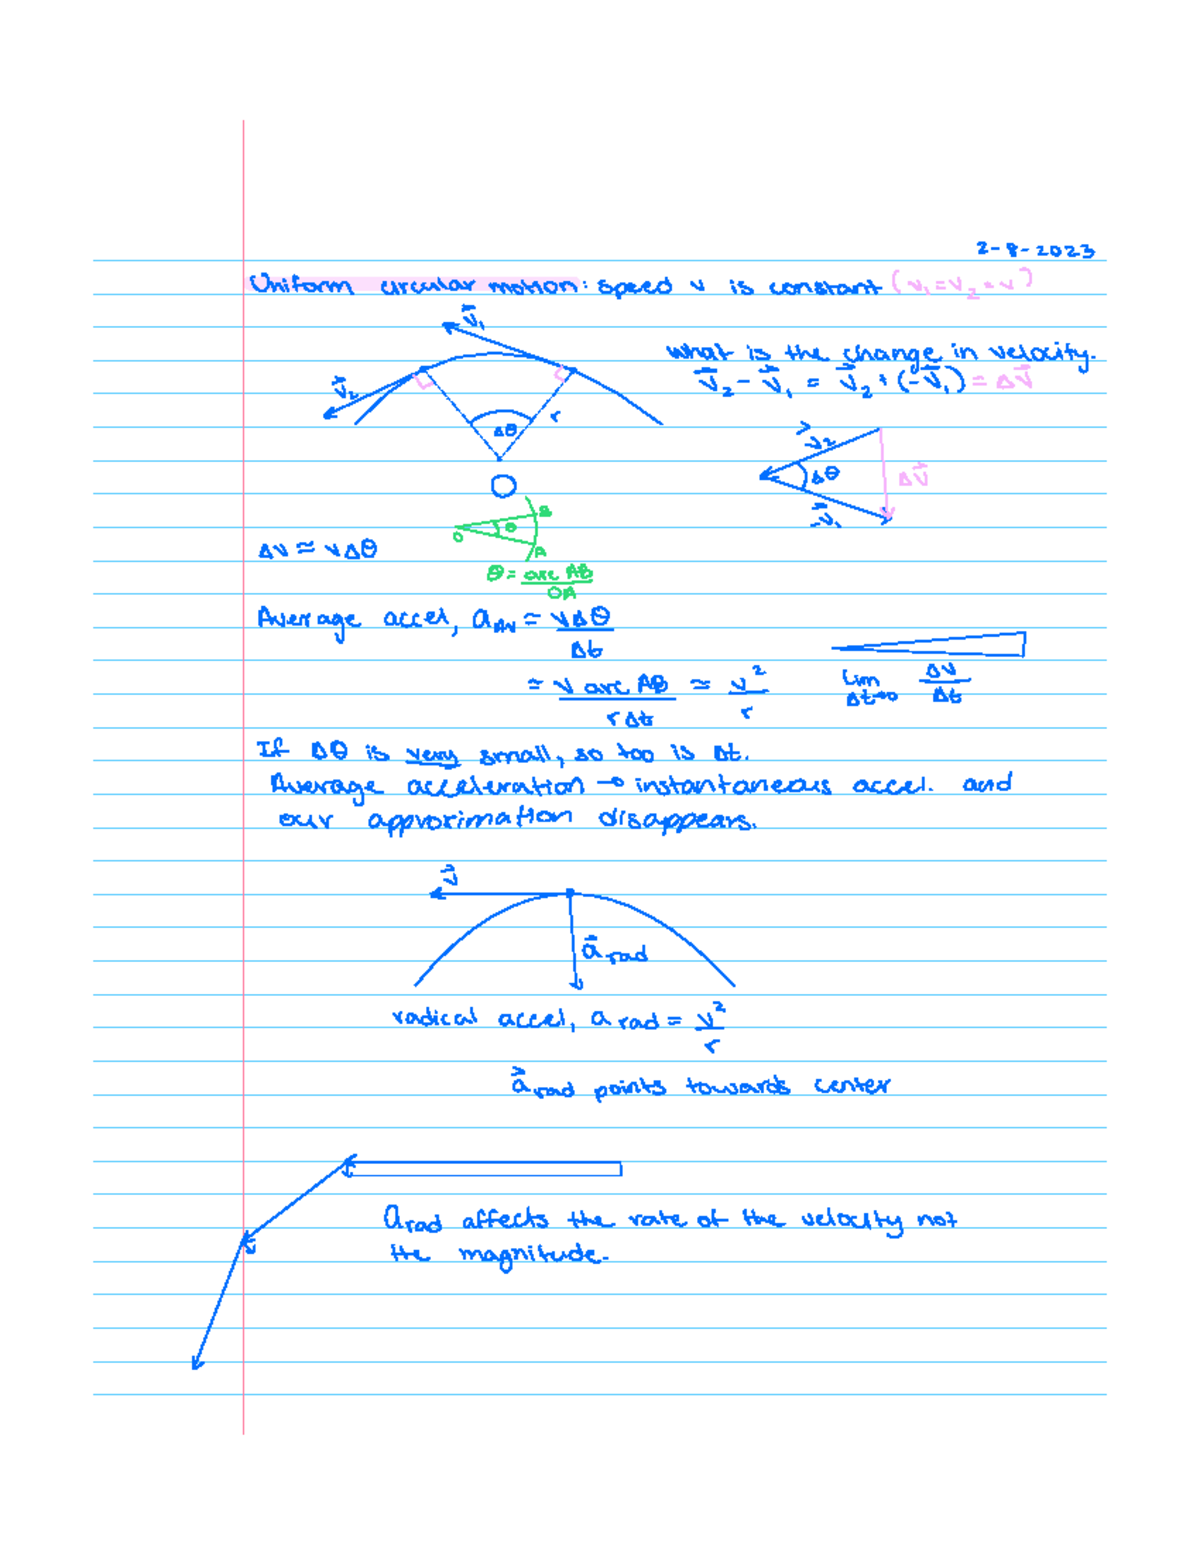 2-8-2023
Uniform circular motion: speed v is constant (v₁=v₂=v)
v⃗₁
What is the change in velocity.
v⃗₂ - v⃗₁ = v⃗₂ + (-v⃗₁) = Δv⃗
v⃗₂
r
Δθ
O
v⃗₂
Δθ
Δv⃗
-v⃗₁
B
θ
O
A
Δv ≈ vΔθ
θ = arc AB / OA
Average accel, a_Av ≈ vΔθ / Δt
≈ v arc AB / rΔt ≈ v² / r
lim Δt→0 Δv / Δt
If Δθ is very small, so too is Δt.
Average acceleration → instantaneous accel. and
our approximation disappears.
v⃗
a⃗ rad
radical accel, a rad = v² / r
a⃗ rad points towards center
a rad affects the rate of the velocity not
the magnitude.